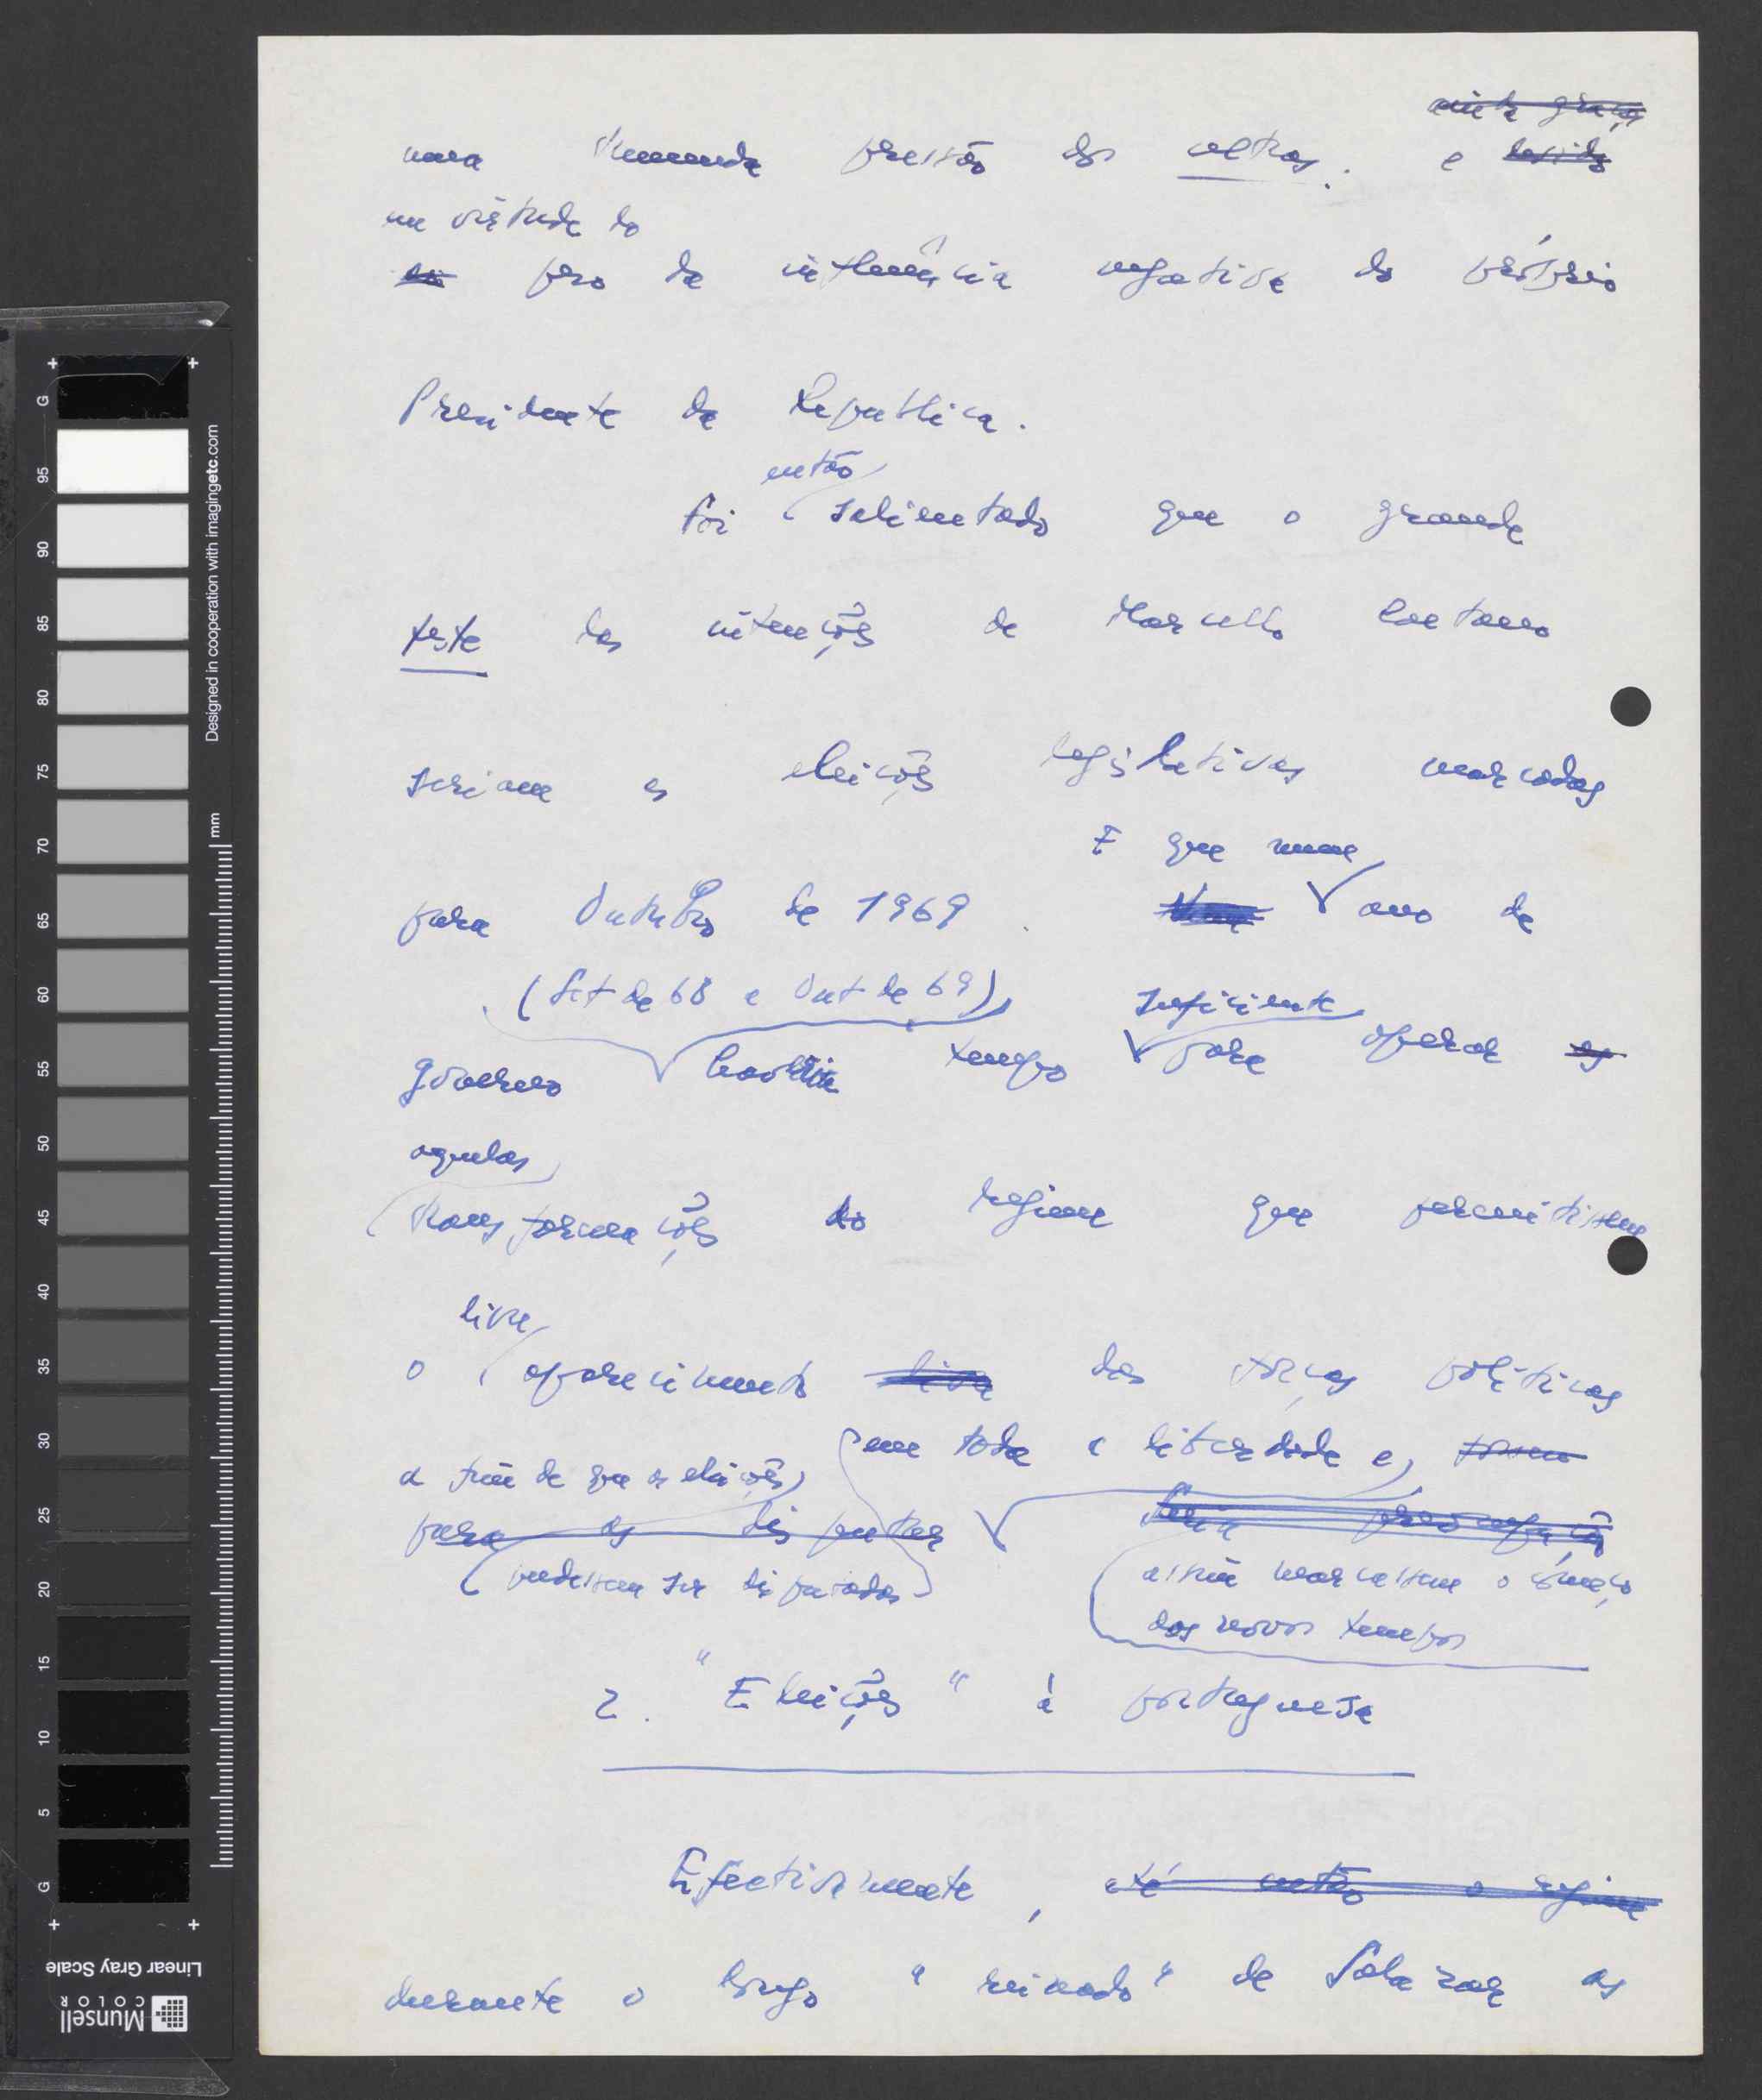 uma tremenda pressão dos ultras. e
em virtude do
peso da influência negativa do próprio
Presidente da Republica.
então
Foi salientado que o grande
teste das intenções de Marcello Caetano
seriam as eleições legislativas marcadas
E que num
para Outubro de 1969. ano de
(Set de 68 a Out de 69) suficiente
governo haveria tempo para operar as
aquelas
transformações do regime que permitissem
livre
o aparecimento livre das forças políticas
a fim de que as eleições em toda a liberdade e,
para as disputar
pudessem ser disputadas assim marcassem o começo
dos novos tempos
2. "Eleições" à portuguesa
Efectivamente, até então o regime
durante o longo "reinado" de Salazar as
G
95
90
85
80
75
70
65
60
55
50
45
40
35
30
25
20
15
10
5
G
mm
Designed in cooperation with imagingetc.com
Linear Gray Scale
Munsell
COLOR